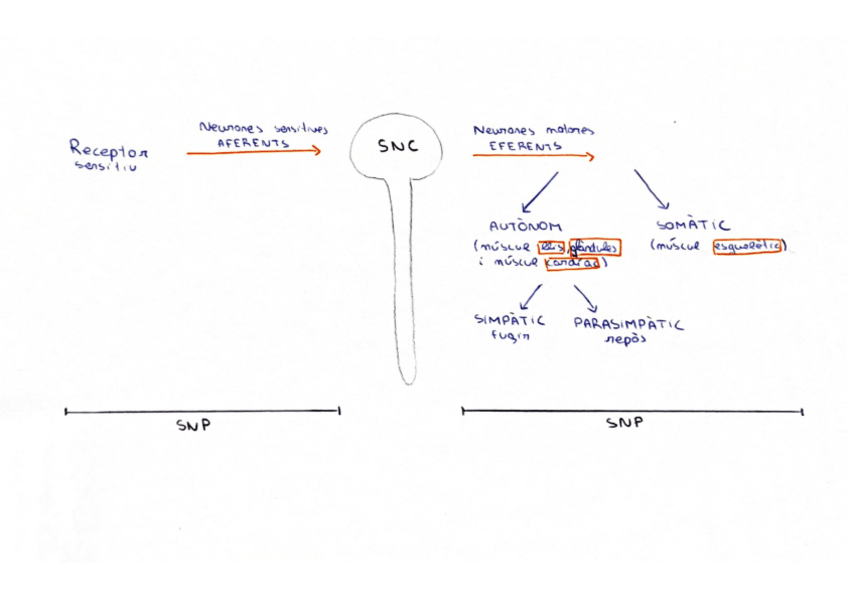 Receptor
sensitiu
Neurones sensitives
AFERENTS
SNC
Neurones motores
EFERENTS
AUTÒNOM
(múscul llis, glàndules
i múscul cardíac)
SOMÀTIC
(múscul esquelètic)
SIMPÀTIC
fugir
PARASIMPÀTIC
repòs
SNP
SNP